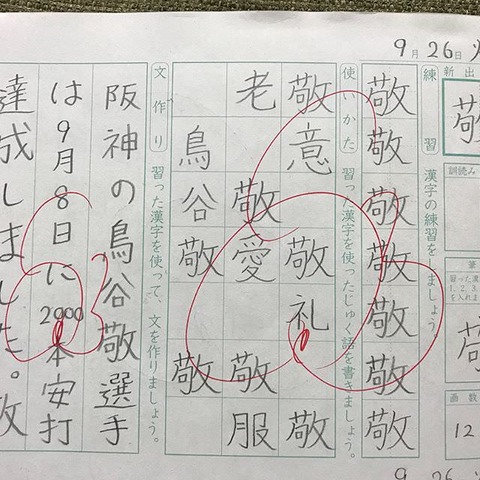 9月26日
新出
敬
訓読み
筆
画数
12
練習 漢字の練習をしましょう。
敬敬敬敬敬敬敬
使いかた 習った漢字を使ったじゅく語を書きましょう。
敬意 敬礼 敬
老 敬愛 敬服
鳥谷敬 敬
文作り 習った漢字を使って、文を作りましょう。
阪神の鳥谷敬選手
は9月8日に2000本安打
達成しました。
9 26